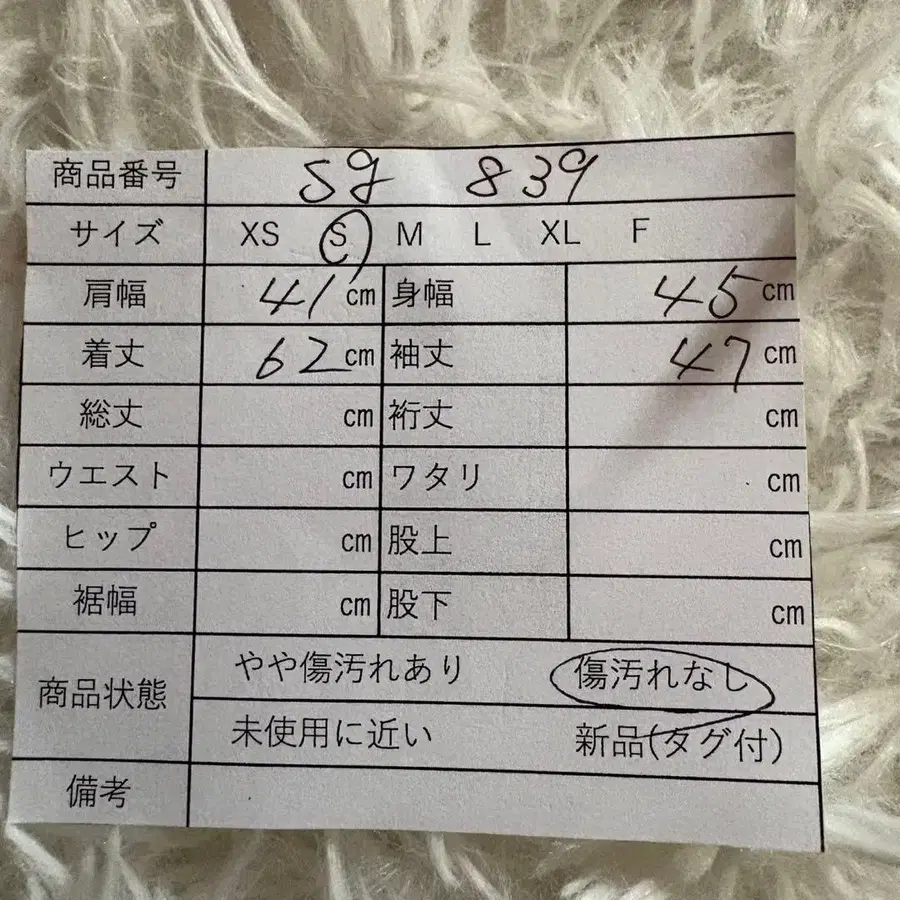 商品番号 sg 839
サイズ XS S M L XL F
肩幅 41cm 身幅 45cm
着丈 62cm 袖丈 47cm
総丈 cm 裄丈 cm
ウエスト cm ワタリ cm
ヒップ cm 股上 cm
裾幅 cm 股下 cm
商品状態 やや傷汚れあり 傷汚れなし
未使用に近い 新品(タグ付)
備考